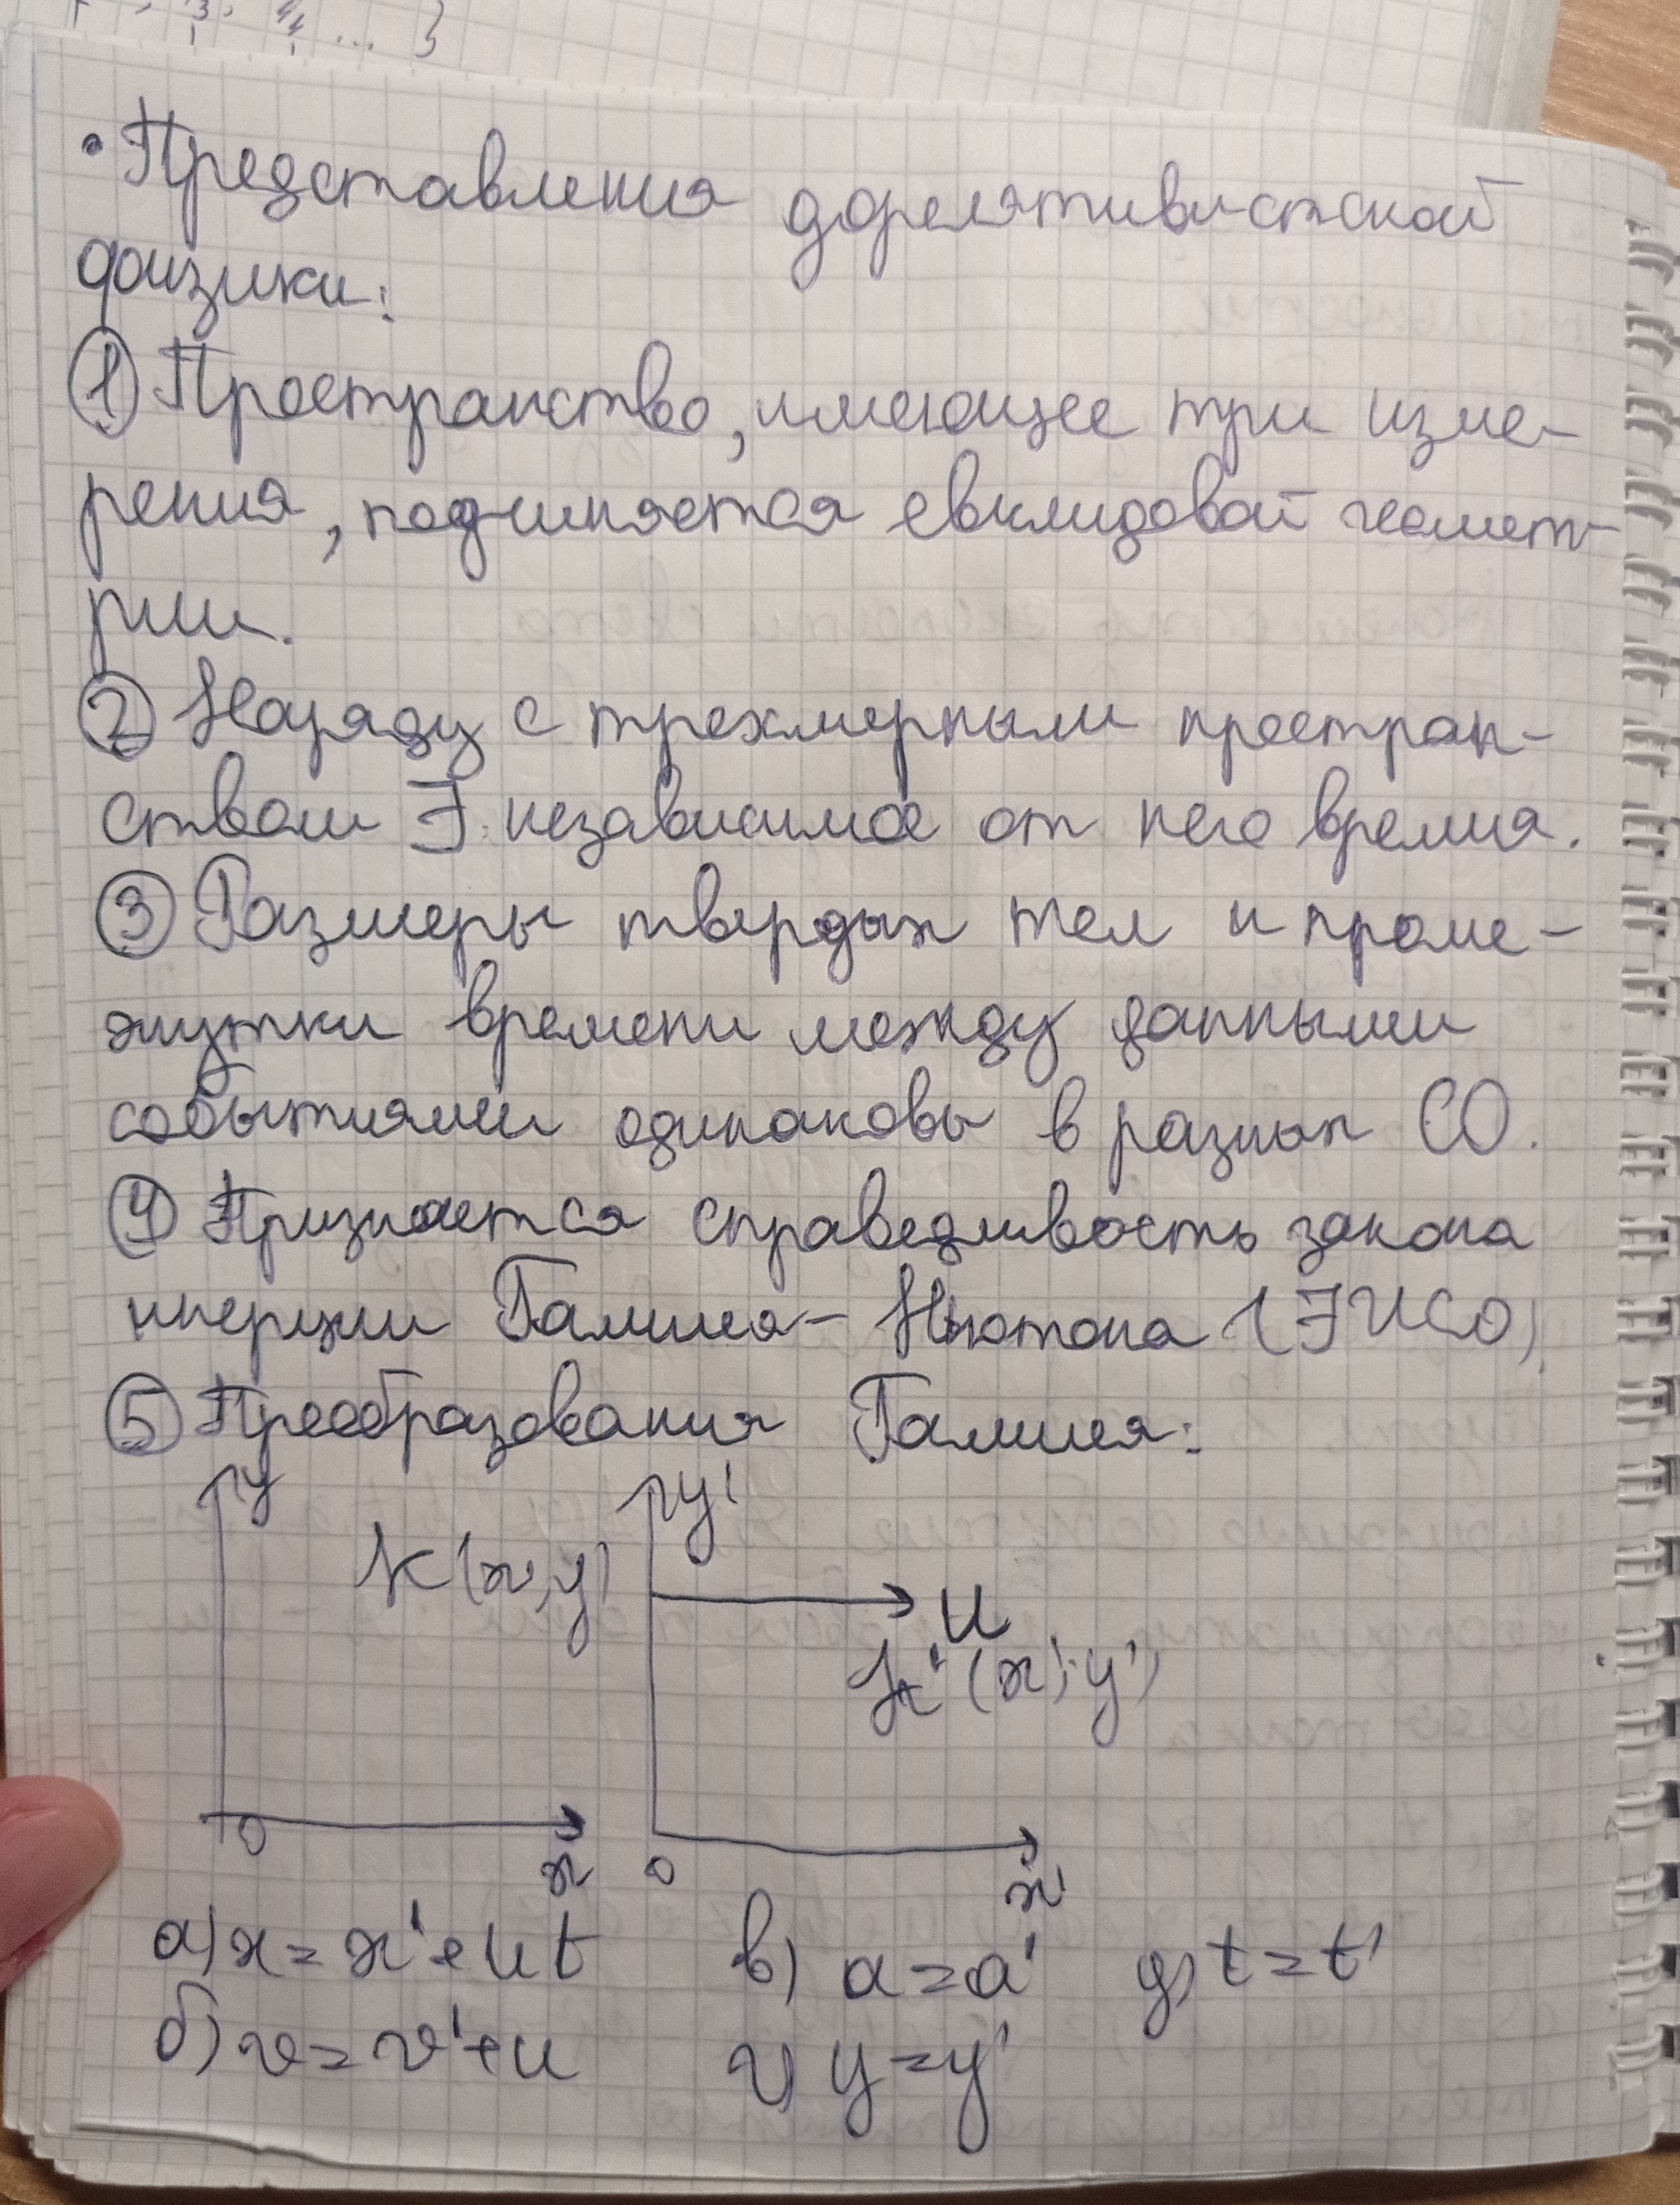 • Представления дорелятивистской
физики:
① Пространство, имеющее три изме-
рения, подчиняется евклидовой геомет-
рии.
② Наряду с трехмерным простран-
ством ∃ независимое от него время.
③ Размеры твердых тел и проме-
жутки времени между данными
событиями одинаковы в разных СО.
④ Признается справедливость закона
инерции Галилея - Ньютона (∃ ИСО)
⑤ Преобразования Галилея:
y y'
K(x,y)
u
K'(x';y')
0 x 0 x'
а) x = x' + ut в) a = a' д) t = t'
б) v = v' + u г) y = y'